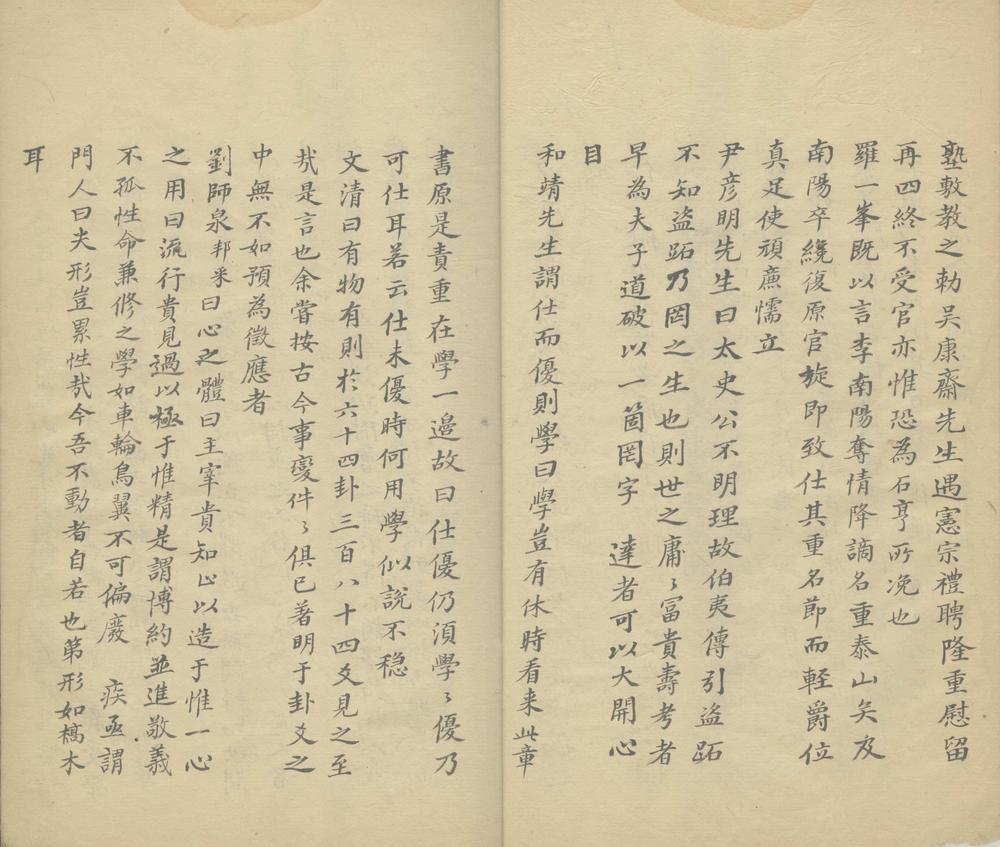 塾敷教之勅吳康齋先生遇憲宗禮聘隆重慰留
再四終不受官亦惟恐為石亨所凂也
羅一峯既以言李南陽奪情降謫名重泰山矣及
南陽卒纔復原官旋即致仕其重名節而軽爵位
真足使頑亷懦立
尹彦明先生曰太史公不明理故伯夷傳引盗跖
不知盗跖乃罔之生也則世之庸〻冨貴壽考者
早為夫子道破以一箇罔字 達者可以大開心
目
和靖先生謂仕而優則學曰學豈有休時看来此章
書原是責重在學一邉故曰仕優仍湏學〻優乃
可仕耳若云仕未優時何用學似説不穏
文清曰有物有則於六十四卦三百八十四爻見之至
㢤是言也余嘗按古今事變件〻俱已著明于卦爻之
中無不如預為徵應者
劉師泉邦采曰心之體曰主宰貴知止以造于惟一心
之用曰流行貴見過以極于惟精是謂博約並進敬義
不孤性命兼修之學如車輪鳥翼不可偏廢 疾亟謂
門人曰夫形豈累性㢤今吾不動者自若也第形如槁木
耳